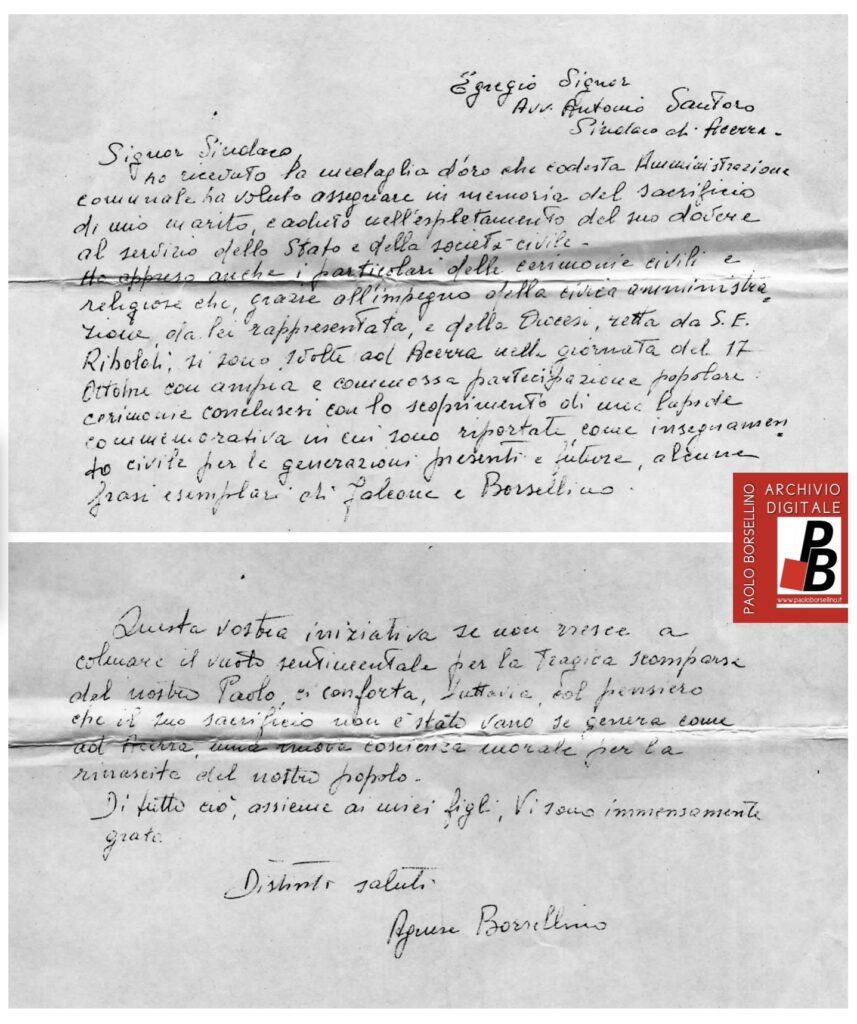 Egregio Signor
Avv. Antonio Santoro
Sindaco di Acerra.
Signor Sindaco,
ho ricevuto la medaglia d'oro che codesta Amministrazione
comunale ha voluto assegnare in memoria del sacrificio
di mio marito, caduto nell'espletamento del suo dovere
al servizio dello Stato e della società civile.
Ho appreso anche i particolari delle cerimonie civili e
religiose che, grazie all'impegno della civica amministra
zione, da lei rappresentata, e della Diocesi, retta da S.E.
Riboldi, si sono svolte ad Acerra nella giornata del 17
Ottobre con ampia e commossa partecipazione popolare:
cerimonie conclusesi con lo scoprimento di una lapide
commemorativa in cui sono riportate, come insegnamen
to civile per le generazioni presenti e future, alcune
frasi esemplari di Falcone e Borsellino.
PAOLO BORSELLINO
ARCHIVIO
DIGITALE
PB
www.paoloborsellino.it
Questa vostra iniziativa se non riesce a
colmare il vuoto sentimentale per la tragica scomparsa
del nostro Paolo, ci conforta, tuttavia, col pensiero
che il suo sacrificio non è stato vano se genera come
ad Acerra, una nuova coscienza morale per la
rinascita del nostro popolo.
Di tutto ciò, assieme ai miei figli, Vi sono immensamente
grata.
Distinti saluti
Agnese Borsellino